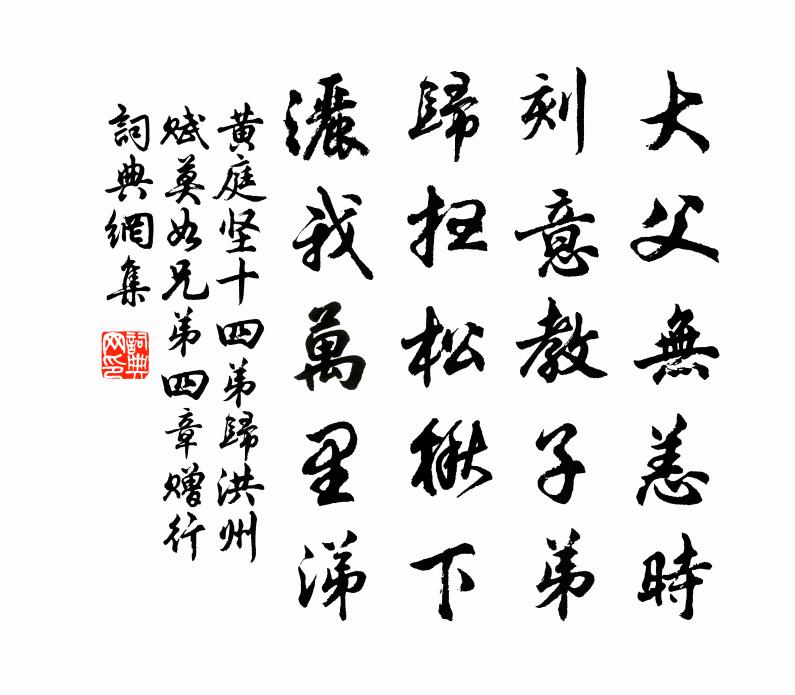 大父無恙時
刻意教子弟
歸掃松楸下
灑我萬里涕
黃庭坚十四弟歸洪州
賦莫如兄弟四章赠行
詞典網集
詞典
网印